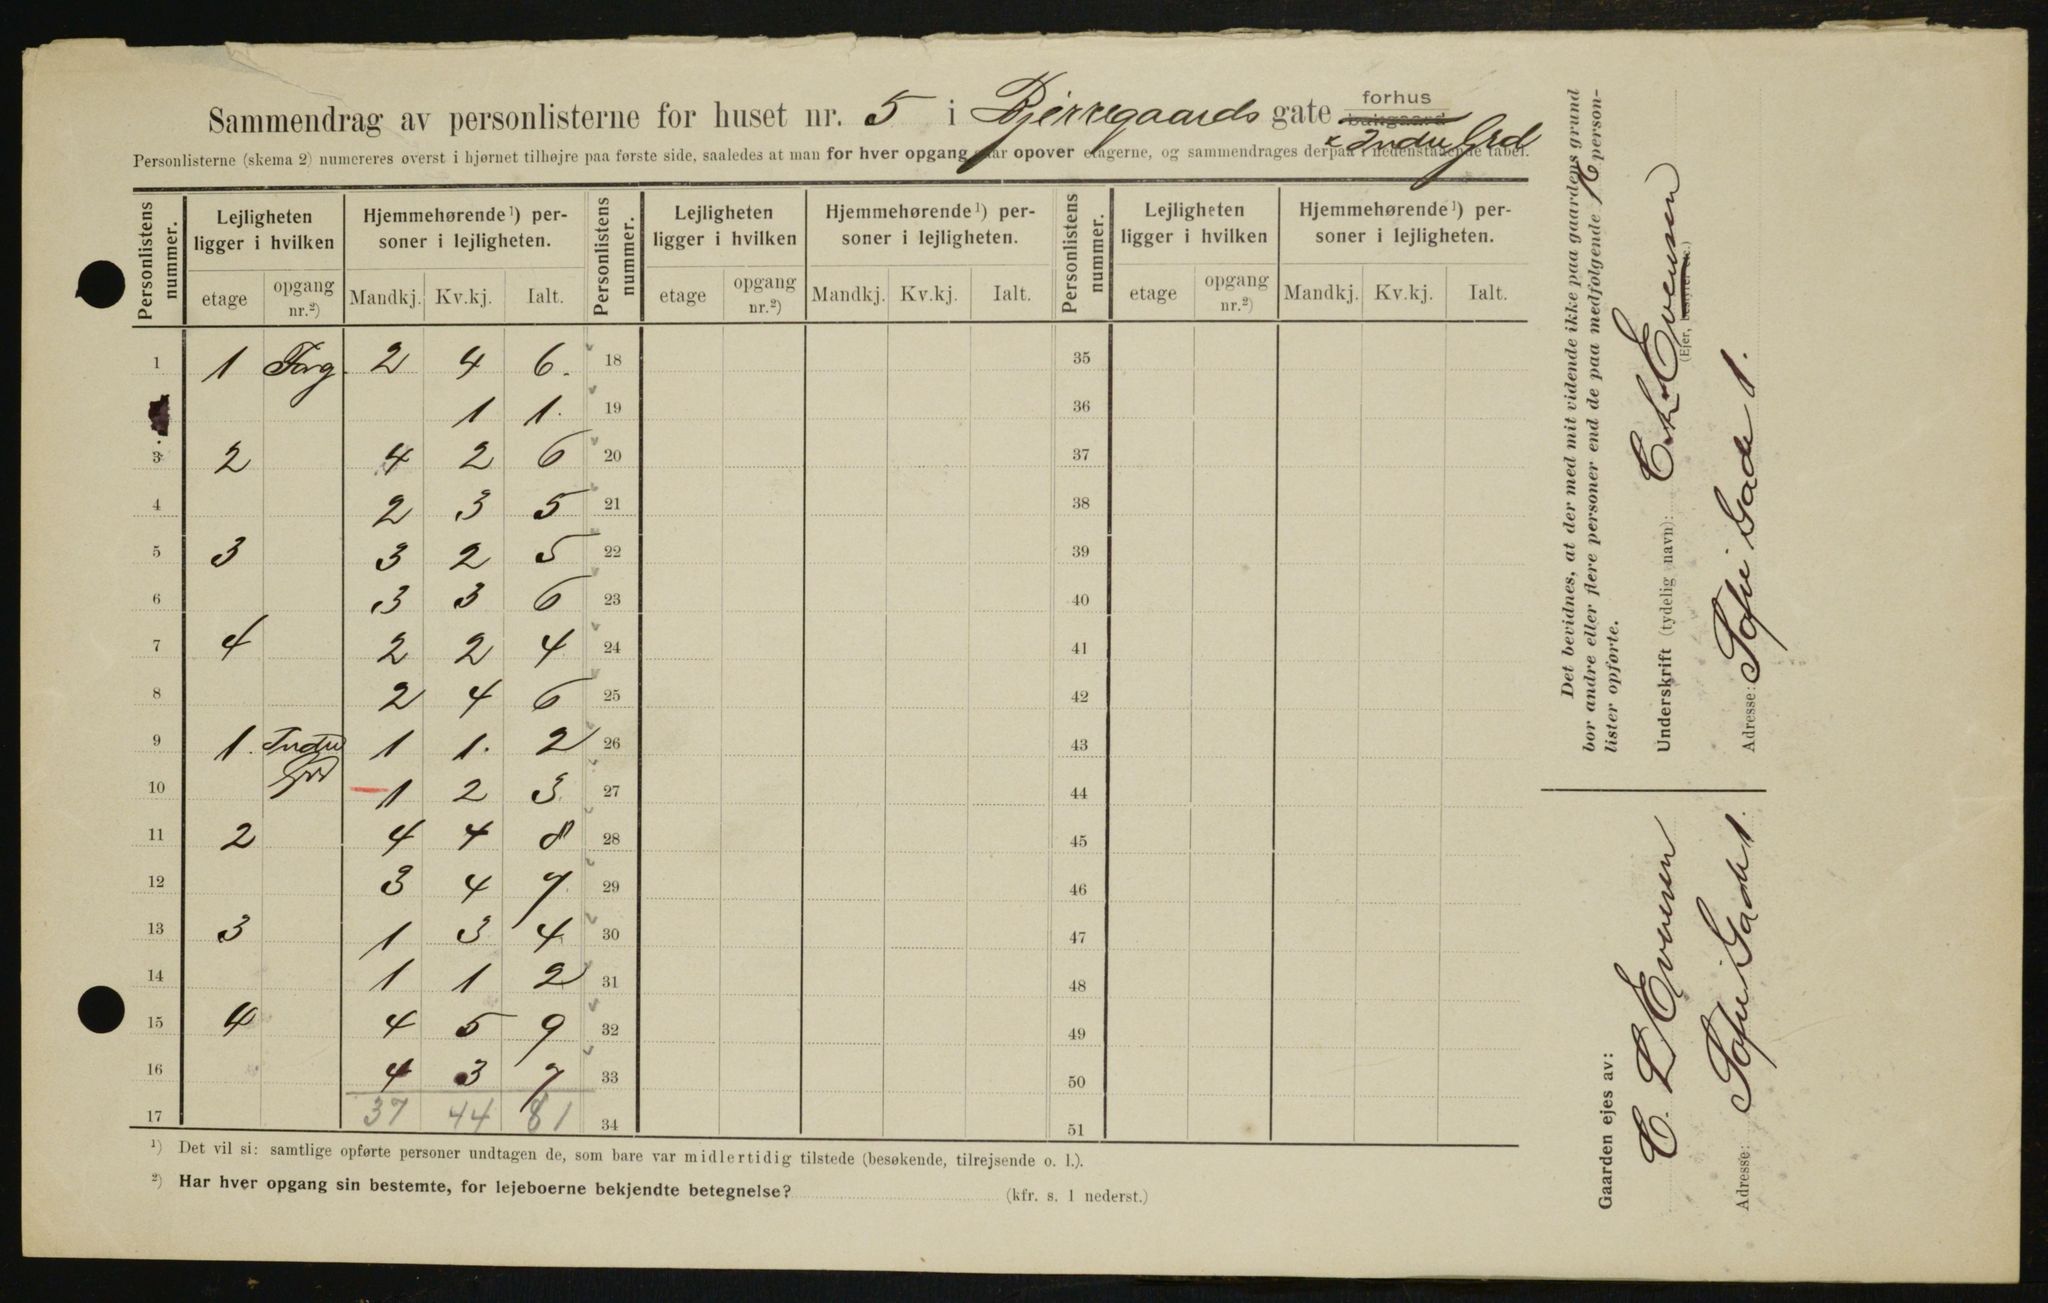 Sammendrag av personlisterne for huset nr. 5 i Bjerregaards gate forhus
bakgaard
x Indre Grd
Personlisterne (skema 2) numereres øverst i hjørnet tilhøjre paa første side, saaledes at man for hver opgang gaar opover etagerne, og sammendrages derpaa i nedenstaaende tabel.
Personlistens nummer. Lejligheten ligger i hvilken Hjemmehørende¹) personer i lejligheten. Personlistens nummer. Lejligheten ligger i hvilken Hjemmehørende¹) personer i lejligheten. Personlistens nummer. Lejligheten ligger i hvilken Hjemmehørende¹) personer i lejligheten.
etage opgang nr.²) Mandkj. Kv.kj. Ialt. etage opgang nr.²) Mandkj. Kv.kj. Ialt. etage opgang nr.²) Mandkj. Kv.kj. Ialt.
1 1 Forg. 2 4 6. 18 35
1 1. 19 36
3 2 4 2 6 20 37
4 2 3 5 21 38
5 3 3 2 5 22 39
6 3 3 6 23 40
7 4 2 2 4 24 41
8 2 4 6 25 42
9 1. Indre Grd 1 1. 2 26 43
10 1 2 3. 27 44
11 2 4 4 8 28 45
12 3 4 7 29 46
13 3 1 3 4 30 47
14 1 1 2 31 48
15 4 4 5 9 32 49
16 4 3 7 33 50
17 37 44 81 34 51
¹) Det vil si: samtlige opførte personer undtagen de, som bare var midlertidig tilstede (besøkende, tilrejsende o. l.).
²) Har hver opgang sin bestemte, for lejeboerne bekjendte betegnelse? (kfr. s. 1 nederst.)
Det bevidnes, at der med mit vidende ikke paa gaardens grund
bor andre eller flere personer end de paa medfølgende 16 person-
lister opførte.
Underskrift (tydelig navn): C. L. Evensen
(Ejer, bestyrer etc.)
Adresse: Sofie Gade 1.
Gaarden ejes av:
C. L Evensen
Adresse: Sofie Gade 1.